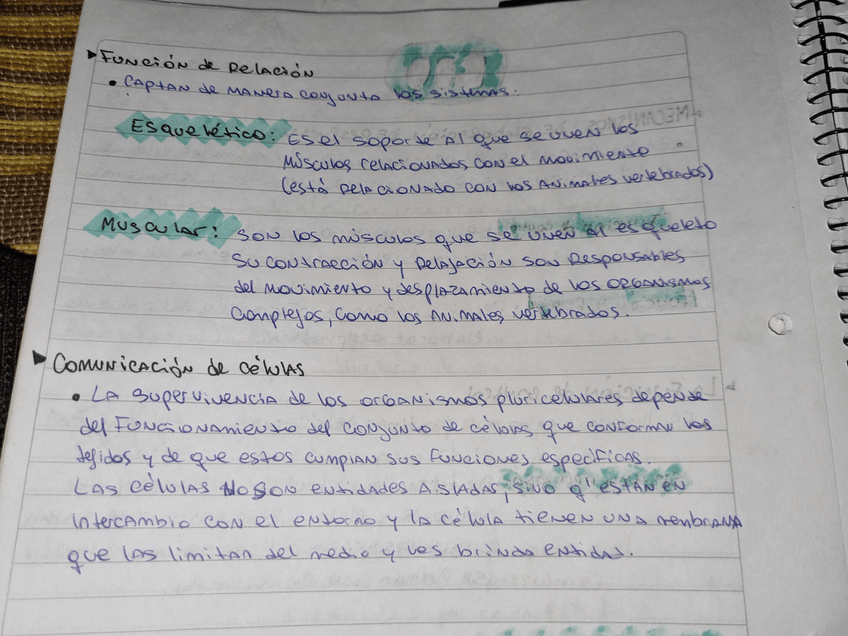 ▶ Función de Relación
• Captan de manera conjunta los sistemas.
Esquelético: Es el soporte al que se unen los
músculos relacionados con el movimiento
(está relacionado con los animales vertebrados)
Muscular: Son los músculos que se unen al esqueleto
su contracción y relajación son responsables
del movimiento y desplazamiento de los organismos
complejos, como los animales vertebrados.
▶ Comunicación de células
• La supervivencia de los organismos pluricelulares depende
del funcionamiento del conjunto de células que conforman los
tejidos y de que estos cumplan sus funciones específicas.
Las células no son entidades aisladas, sino q' están en
intercambio con el entorno y la célula tienen una menbrana
que las limitan del medio y les brinda entidad.